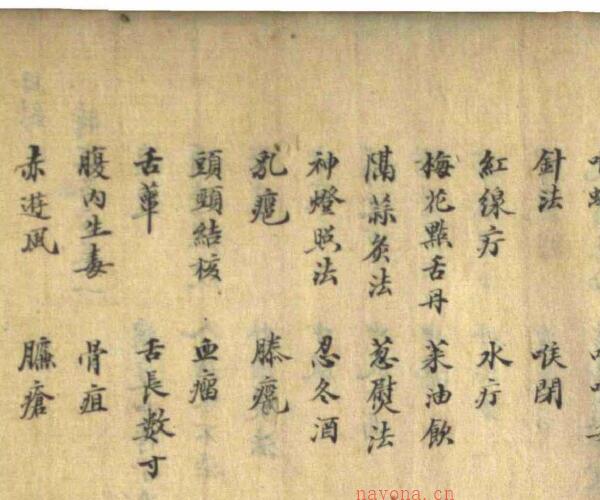 針法 喉閉
紅線疔 水疔
梅花點舌丹 菜油飲
隔蒜灸法 葱熨法
神燈照法 忍冬酒
乳 膝
頭頸結核 血瘤
舌 舌長數寸
腹內生毒 骨疽
赤遊風 臁瘡
nayona.cn